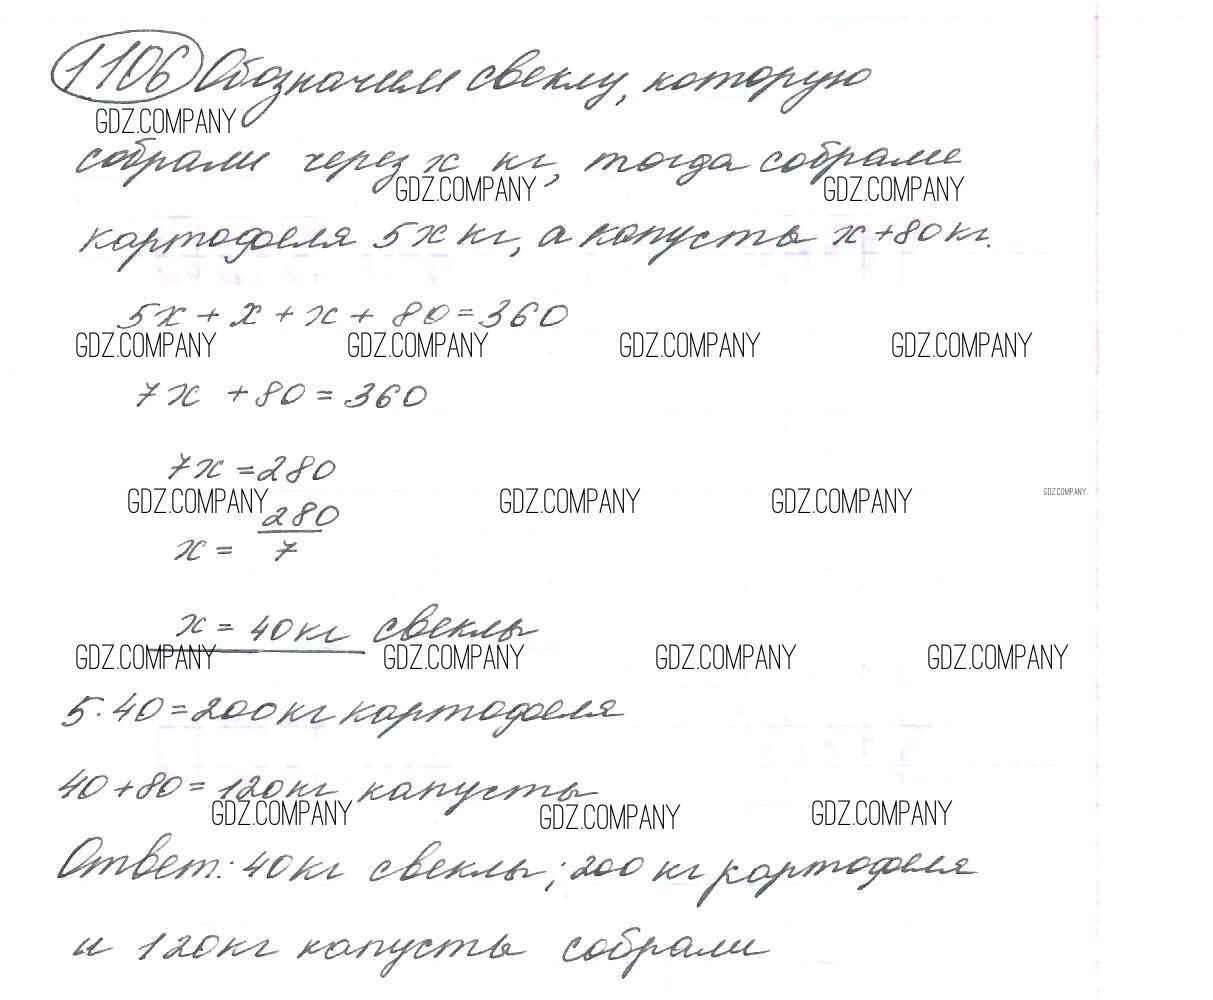 1106 Обозначим свеклу, которую
GDZ.COMPANY
собрали через x кг, тогда собрали
GDZ.COMPANY GDZ.COMPANY
картофеля 5x кг, а капусты x+80кг.
5x + x + x + 80 = 360
GDZ.COMPANY GDZ.COMPANY GDZ.COMPANY GDZ.COMPANY
7x + 80 = 360
7x = 280
GDZ.COMPANY GDZ.COMPANY GDZ.COMPANY GDZ.COMPANY
x = 280/7
x = 40кг свеклы
GDZ.COMPANY GDZ.COMPANY GDZ.COMPANY GDZ.COMPANY
5·40=200кг картофеля
40+80=120кг капусты
GDZ.COMPANY GDZ.COMPANY GDZ.COMPANY
Ответ: 40кг свеклы; 200 кг картофеля
и 120кг капусты собрали